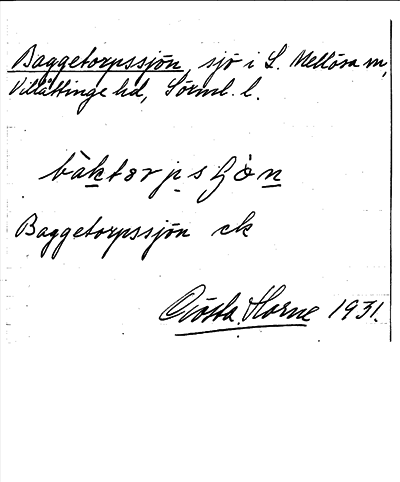 Baggetorpssjön, sjö i L. Mellösa sn,
Villåttinge hd, Sörml. l.
bàktorpsʃön
Baggetorpssjön ek
Gösta Horne 1931.